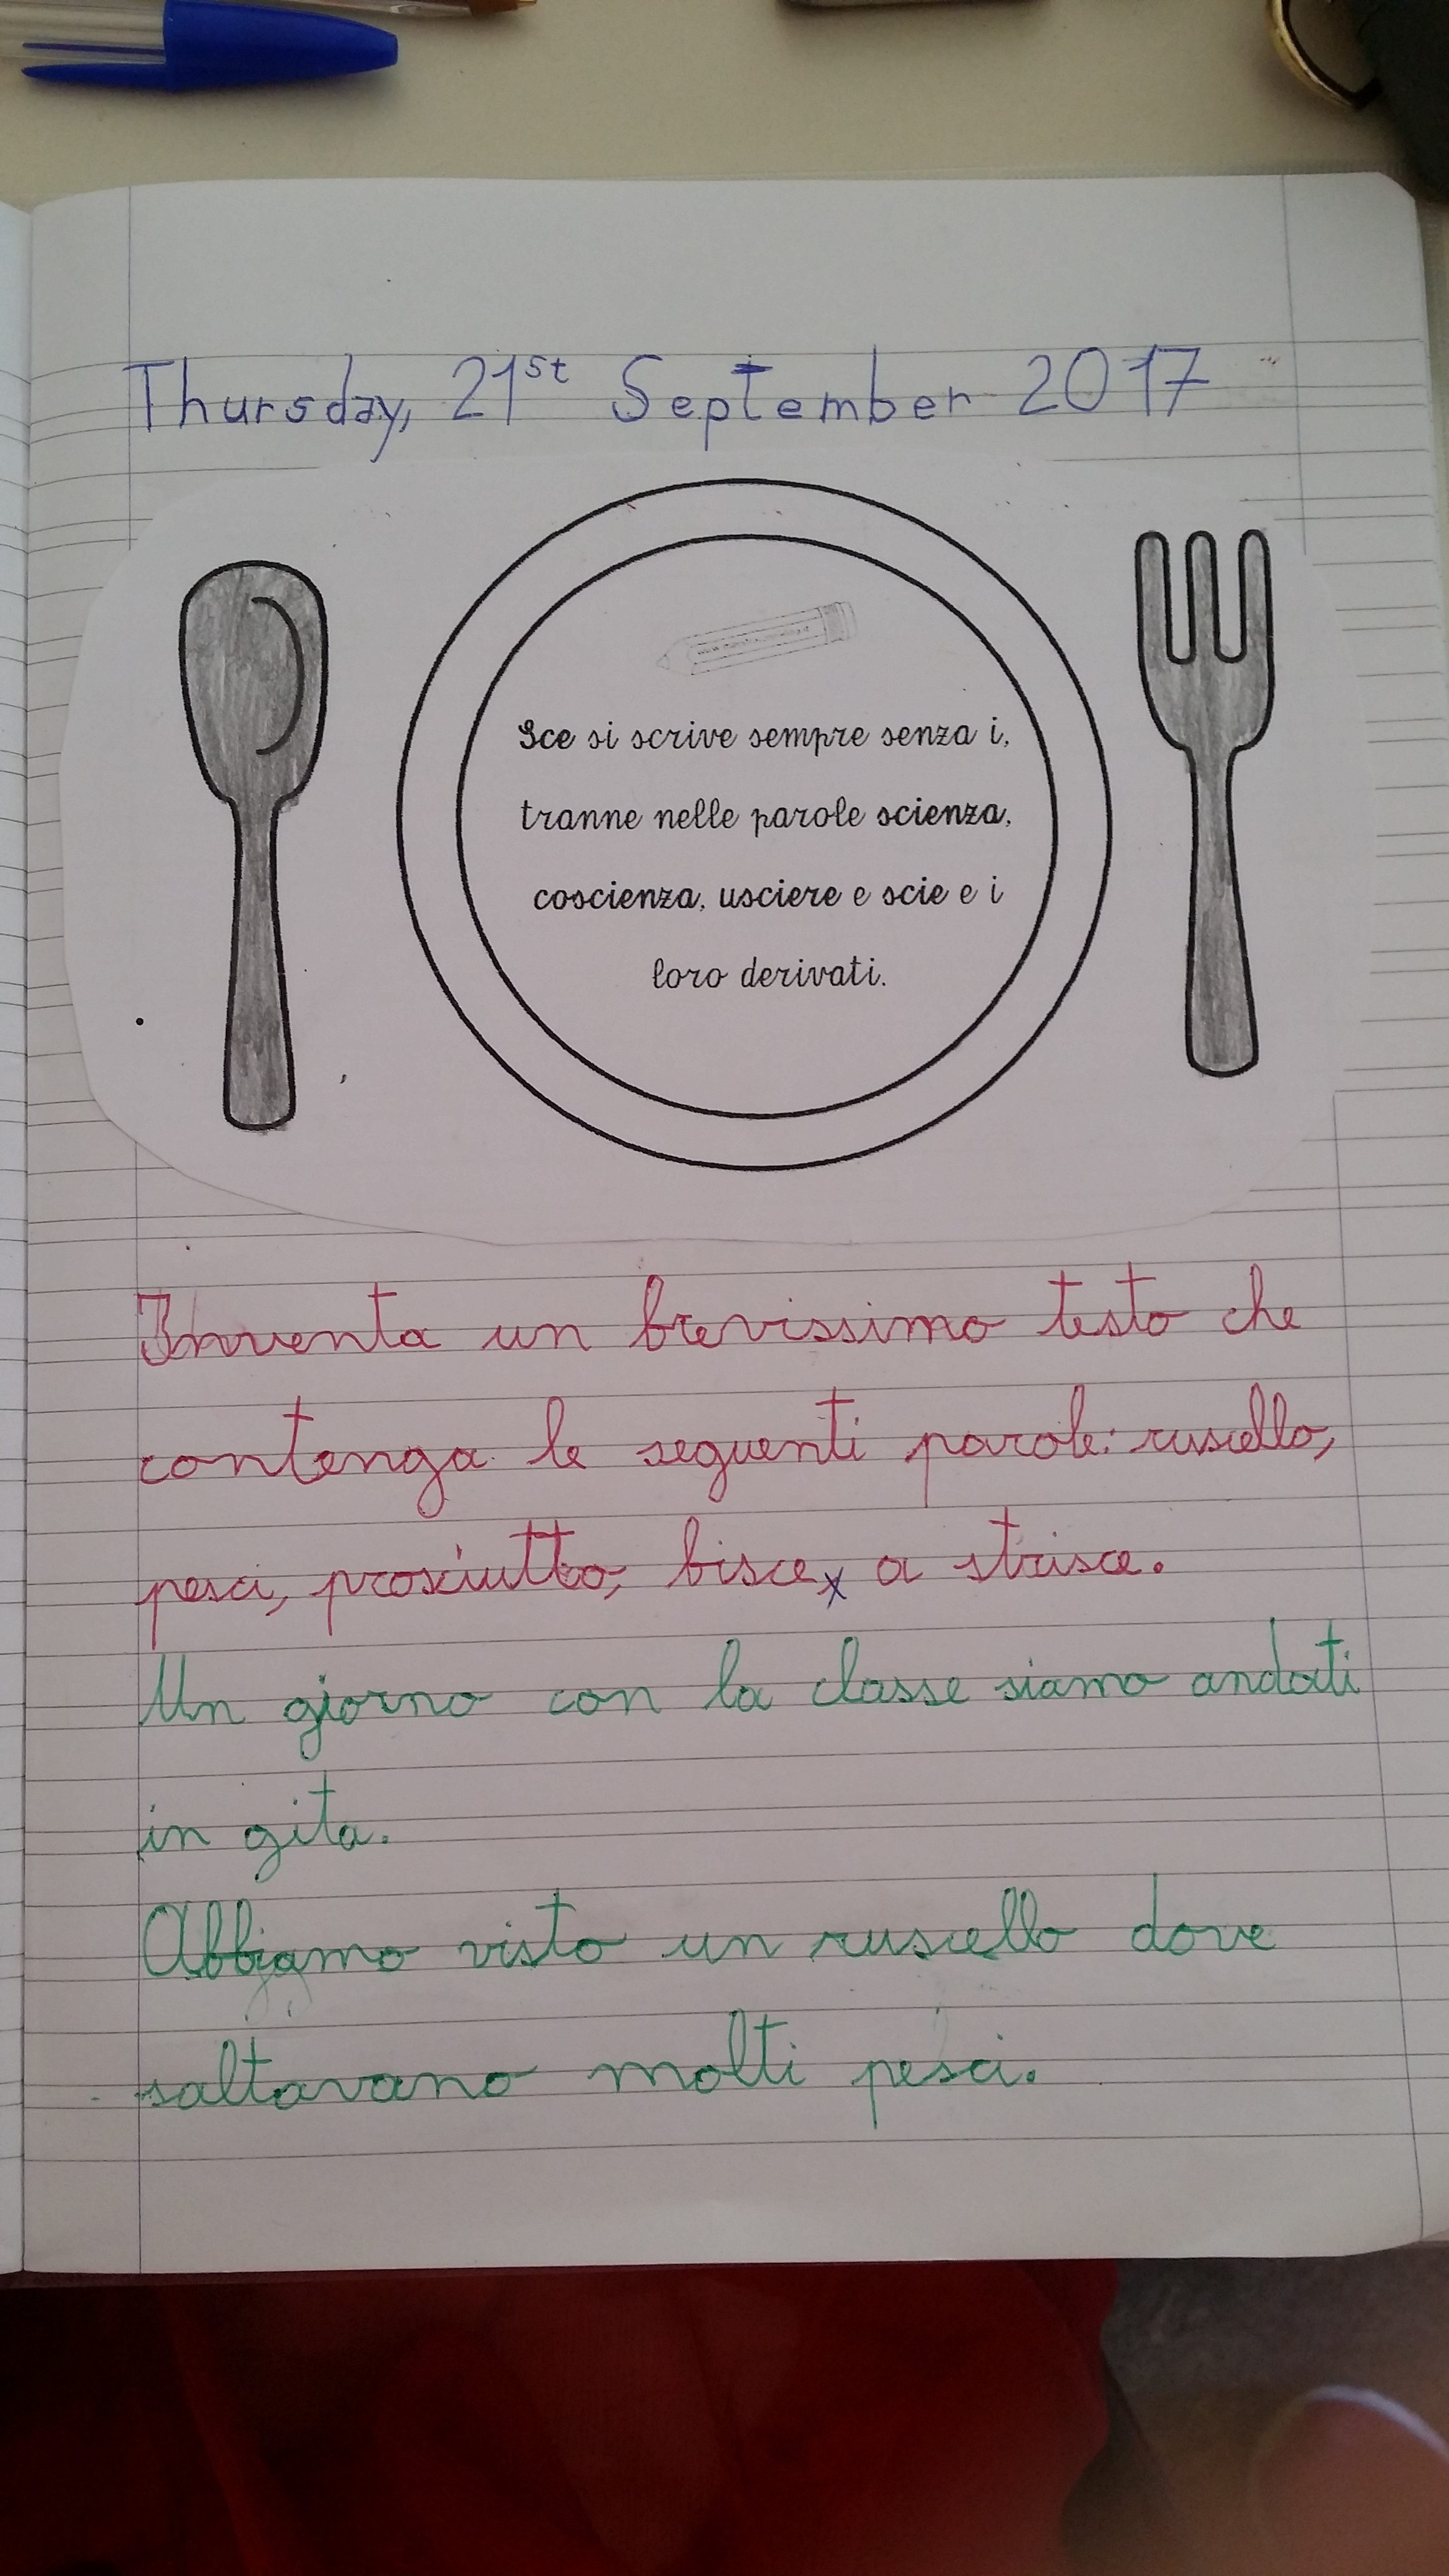 Thursday, 21st September 2017
Sce si scrive sempre senza i,
tranne nelle parole scienza,
coscienza, usciere e scie e i
loro derivati.
Inventa un brevissimo testo che
contenga le seguenti parole: ruscello,
pesci, prosciutto, bisce, a strisce.
Un giorno con la classe siamo andati
in gita.
Abbiamo visto un ruscello dove
saltavano molti pesci.